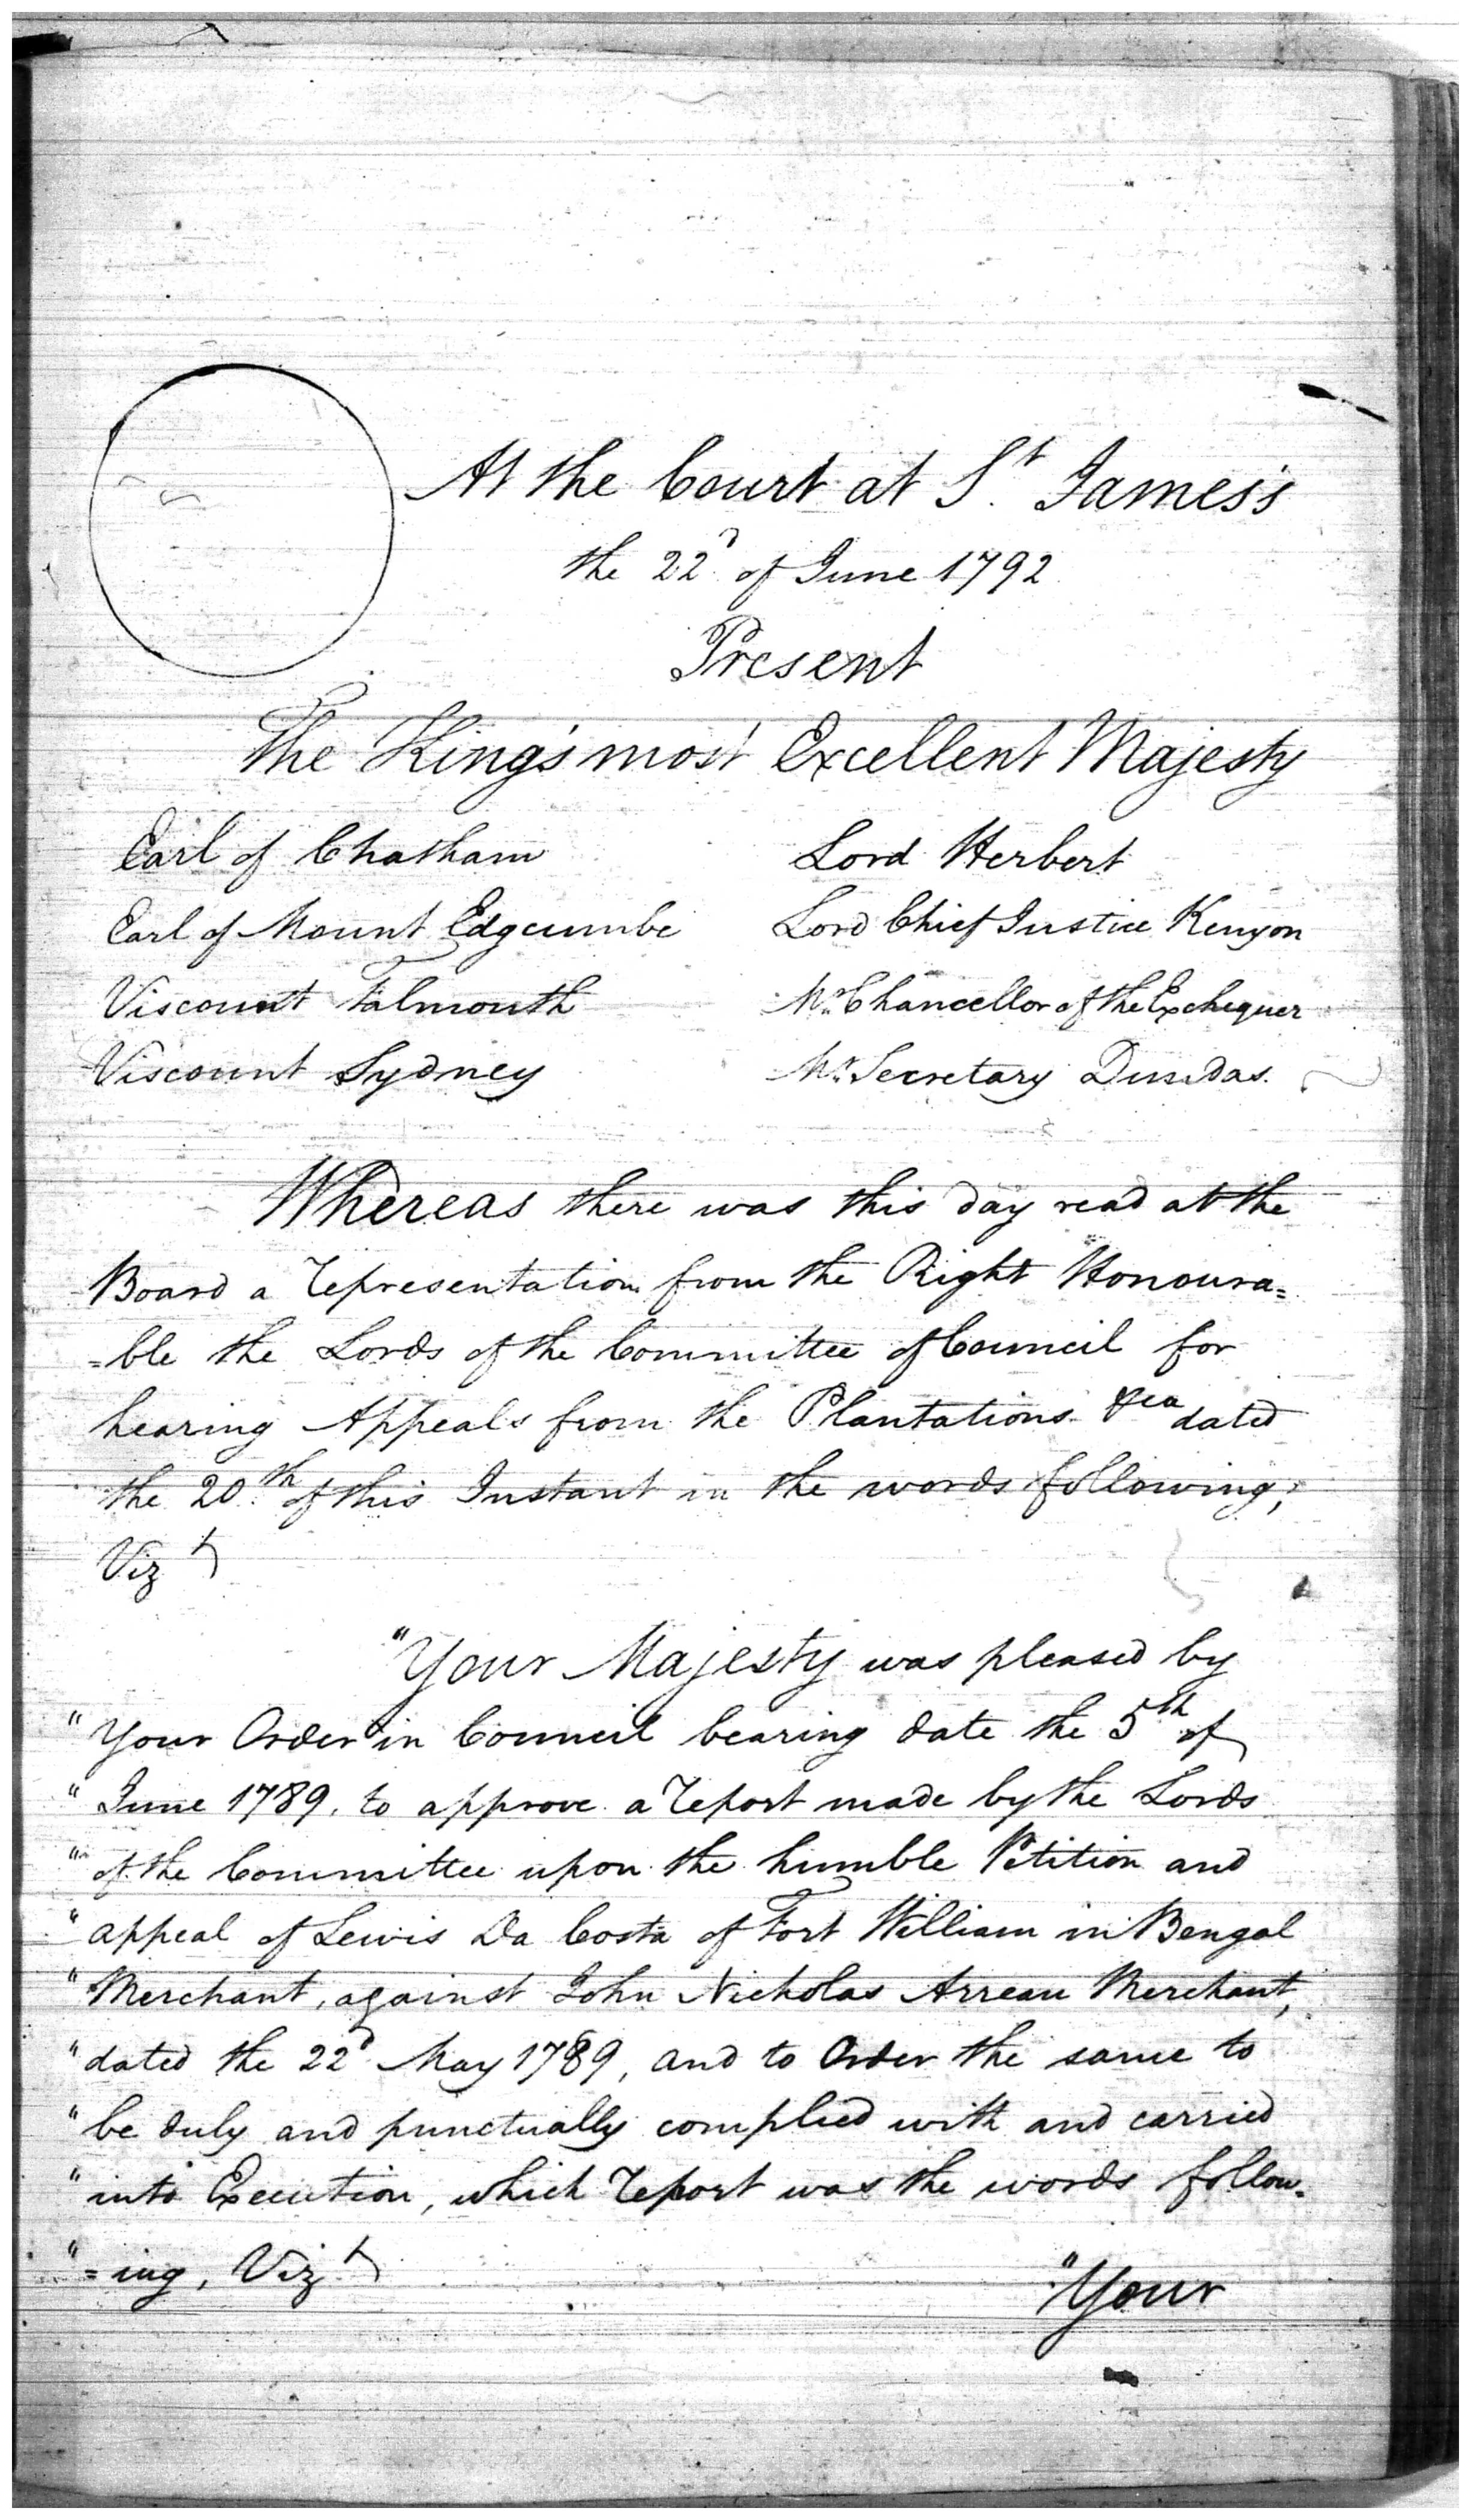 At the Court at St. James's
the 22d. of June 1792
Present
The King's most Excellent Majesty
Earl of Chatham Lord Herbert
Earl of Mount Edgcumbe Lord Chief Justice Kenyon
Viscount Falmouth Mr. Chancellor of the Exchequer
Viscount Sydney Mr. Secretary Dundas.
Whereas there was this day read at the
Board a Representation from the Right Honoura=
=ble the Lords of the Committee of Council for
hearing Appeals from the Plantations &ca dated
the 20th. of this Instant in the words following;
Vizt
"Your Majesty was pleased by
"Your Order in Council bearing date the 5th of
"June 1789, to approve a Report made by the Lords
"of the Committee upon the humble Petition and
"appeal of Lewis Da Costa of Fort William in Bengal
"Merchant, against John Nicholas Arreau Merchant,
"dated the 22d May 1789, and to Order the same to
"be duly and punctually complied with and carried
"into Execution, which Report was the words follow=
"=ing, Vizt
"Your